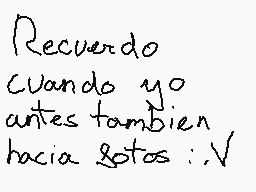 Recuerdo
cuando yo
antes tambien
hacia fotos :.V